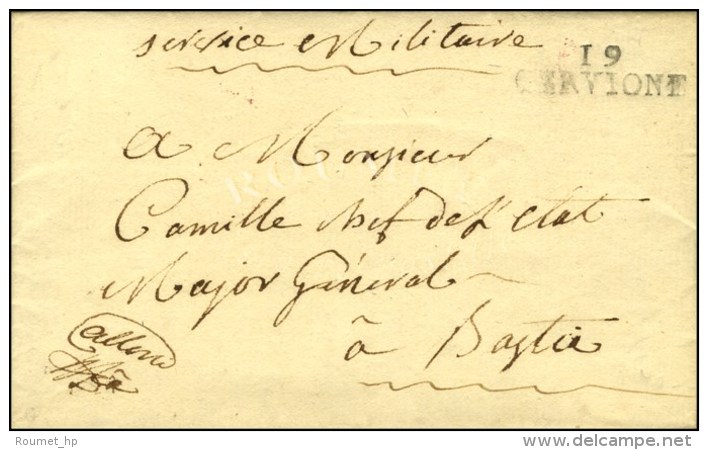 service Militaire
19
CERVIONE
A Monsieur
Camille chef de l'état
Major Général
à Bastia
Roumet_hp
©delcampe.net